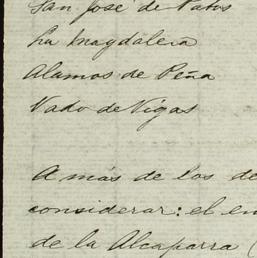 San José de Patos
La Magdalena
Alamos de Peña
Vado de Vigas
A más de los de
considerar: el en
de la Alcaparra (